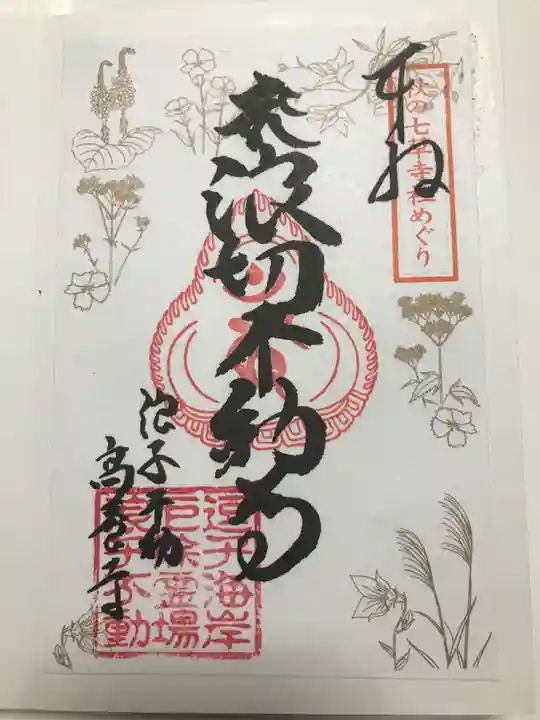 奉拝
秋の七草寺社めぐり
大浪切不動
浪子不動
高養寺
逗子海岸
厄除霊場
浪子不動